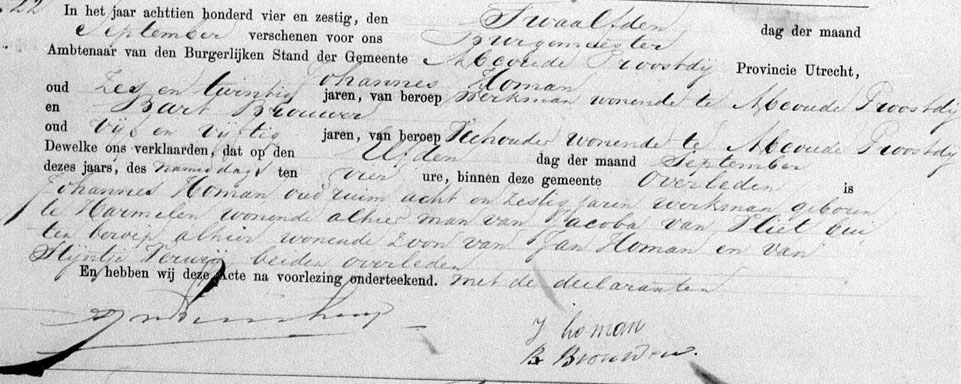 22
In het jaar achttien honderd vier en zestig, den Twaalfden dag der maand
September verschenen voor ons Burgemeester
Ambtenaar van den Burgerlijken Stand der Gemeente Abcoude Proostdij Provincie Utrecht,
Johannes Homan
oud Zes en twintig jaren, van beroep Werkman wonende te Abcoude Proostdij
en Bart Brouwer
oud Vijf en Vijftig jaren, van beroep Veehouder wonende te Abcoude Proostdij
Dewelke ons verklaarden, dat op den Elfden dag der maand September
dezes jaars, des namiddags ten vier ure, binnen deze gemeente overleden is
Johannes Homan oud ruim acht en Zestig jaren werkman geboren
te Harmelen wonende alhier man van Jacoba van Vliet
beroep alhier wonende Zoon van Jan Homan en van
Stijntje beiden overleden
En hebben wij deze Acte na voorlezing onderteekend. met de declaranten
J homan
B Brouwer.